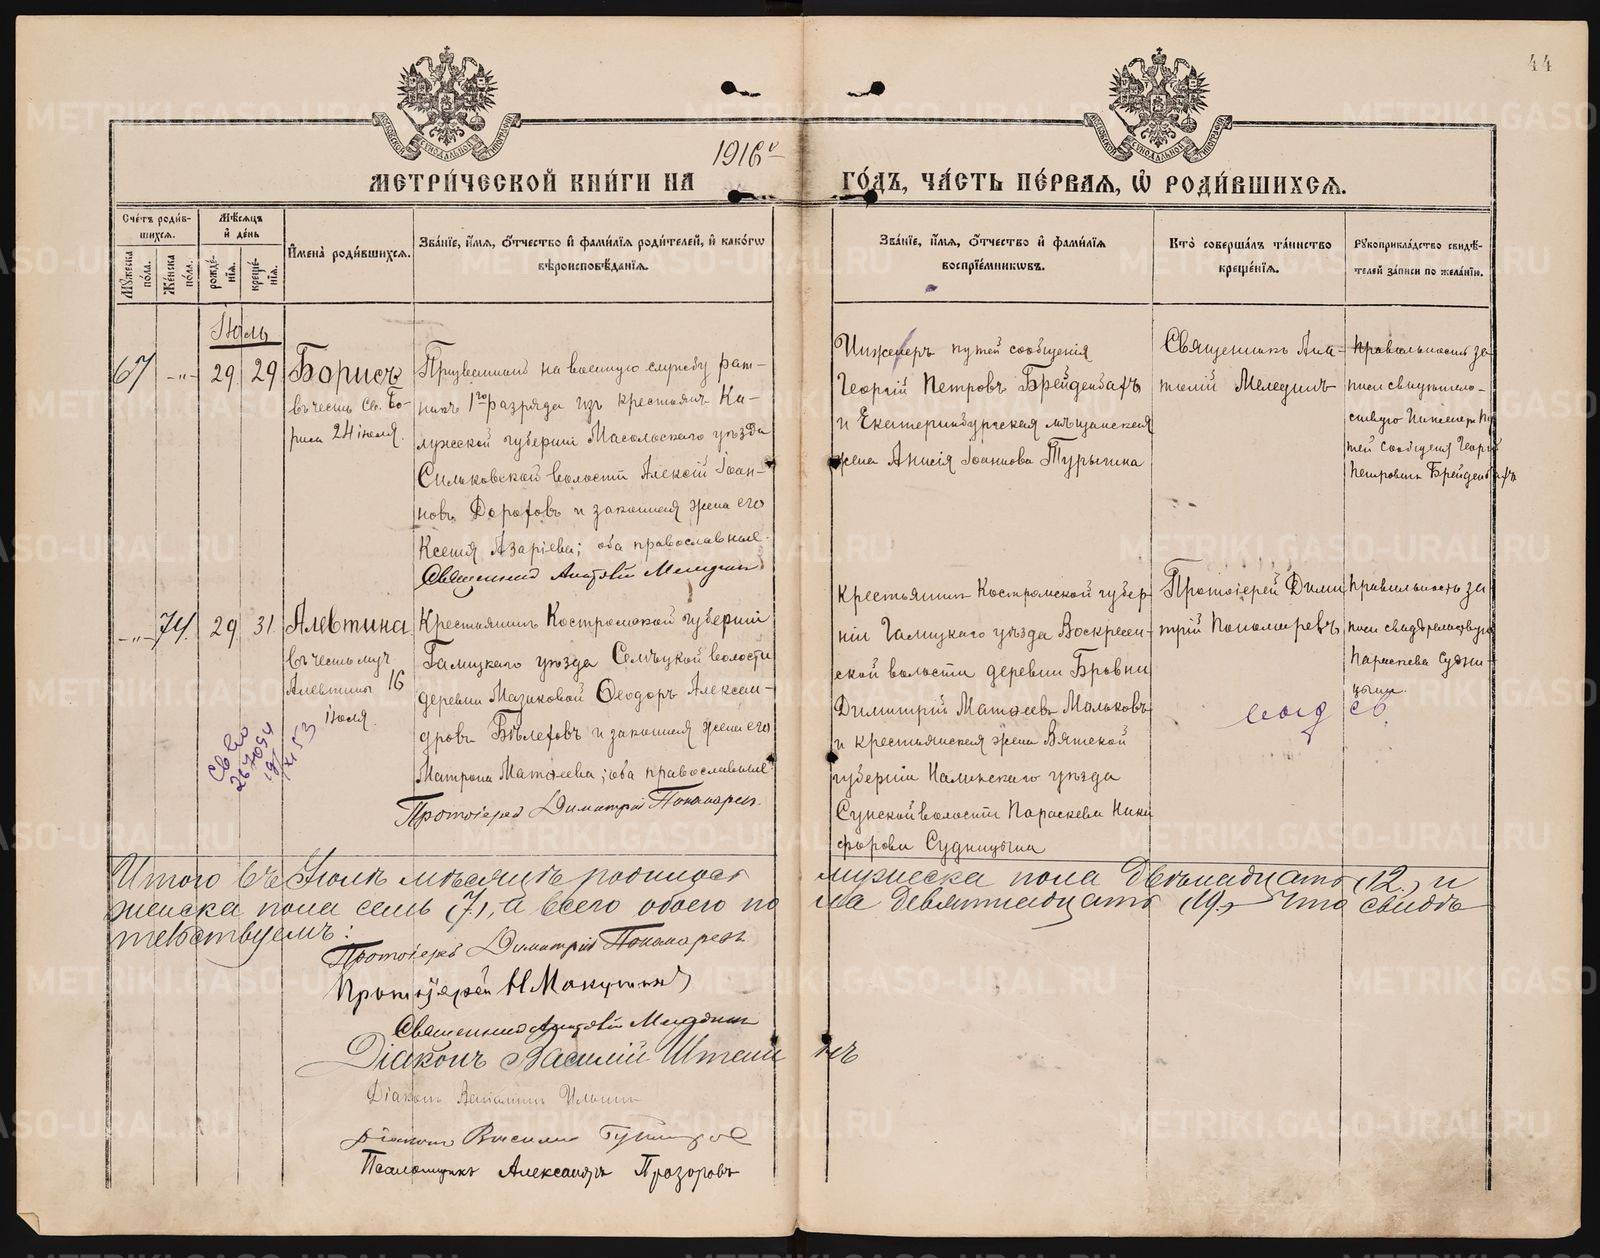 44
1916 г
МЕТРИ́ЧЕСКОЙ КНИ́ГИ НА
ГО́ДЪ, ЧА́СТЬ ПЕ́РВАЯ, Ѡ҆ РОДИ́ВШИХСЯ.
Сче́тъ роди́вшихся.
Мꙋ́жеска по́ла.
Же́нска по́ла.
Мѣ́сяцъ и҆ де́нь
рожде́нїя.
креще́нїя.
И҆мена̀ роди́вшихся.
Зва́нїе, и҆́мя, ѻ҆́тчество и҆ фами́лїя роди́телей, и҆ како́гѡ
вѣроисповѣ́данїя.
Зва́нїе, и҆́мя, ѻ҆́тчество и҆ фами́лїя
воспрїе́мникѡвъ.
Кто̀ соверша́лъ та́инство
креще́нїя.
Рꙋкоприкла́дство свидѣ́-
телей за́писи по жела́нїю.
Іюль
67
-"-
29
29
Борисъ
въ честь Св. Бо-
риса 24 іюля.
Призванный на военную службу рат-
никъ 1го разряда изъ крестьянъ Ка-
лужской губерніи Масальскаго уѣзда
Сильковской волости Алексій Іоан-
новъ Дорофовъ и законная жена его
Ксенія Азаріева; оба православные.
Священникъ Анатолій Меледин
Инженеръ путей сообщенія
Георгій Петровъ Брейденбахъ
и Екатеринбургская мѣщанская
жена Анисія Іоаннова Турыгина
Священникъ Ана-
толій Меледин
Правильность за-
писи свидѣтель-
ствую Инженеръ Пу
тей Сообщенія Георгій
Петровичъ Брейденбахъ
-"-
74.
29
31
Алевтина
въ честь муч.
Алевтины 16
іюля.
Крестьянинъ Костромской губерніи
Галицкаго уѣзда
волости
деревни
Ѳеодоръ Алексан-
дровъ Бѣлеховъ и законная жена его
Матрона Матѳеева; оба православные
Протоіерей Димитрій Пономаревъ.
Крестьянинъ Костромской губер-
ніи Галицкаго уѣзда Воскресен-
ской волости деревни
Димитрій Матѳеевъ Мальковъ
и крестьянская жена Вятской
губерніи Нолинскаго уѣзда
Сунской волости Параскева Ники
форова Судницына
Протоіерей Дими
трій Пономаревъ
Правильность за
писи свидѣтельствую
Параскева Судни-
цына.
Итого въ Іюлѣ мѣсяцѣ родилось
мужеска пола двѣнадцать (12.) и
женска пола семь (7), а всего обоего по
ла девятнадцать (19.) Что свидѣ
тельствуемъ:
Протоіерей Димитрій Пономаревъ
Протоіерей Н Макушинъ
Священникъ Анатолій Меледин
Діаконъ Василій
Діаконъ Веніаминъ Ильинъ
Діаконъ Василій
Псаломщикъ Александръ Прозоровъ
METRIKI.GASO-URAL.RU